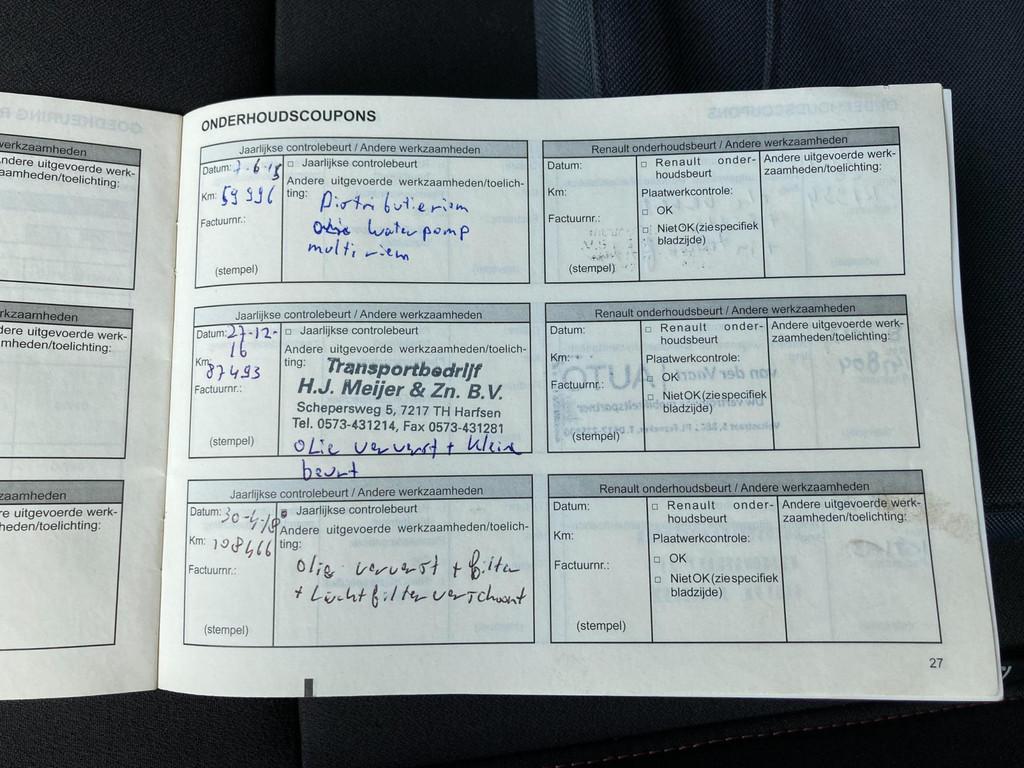 ONDERHOUDSCOUPONS
werkzaamheden
ndere uitgevoerde werk-
aamheden/toelichting:
rkzaamheden
dere uitgevoerde werk-
mheden/toelichting:
zaamheden
re uitgevoerde werk-
heden/toelichting:
Jaarlijkse controlebeurt / Andere werkzaamheden
Datum: 7-6-15
□ Jaarlijkse controlebeurt
Km: 59996
Andere uitgevoerde werkzaamheden/toelich-
ting: Distributieriem
Factuurnr.:
waterpomp
multi riem
(stempel)
Renault onderhoudsbeurt / Andere werkzaamheden
Datum:
□ Renault onder-
houdsbeurt
Andere uitgevoerde werk-
zaamheden/toelichting:
Km:
Plaatwerkcontrole:
□ OK
Factuurnr.:
□ Niet OK (zie specifiek
bladzijde)
(stempel)
Jaarlijkse controlebeurt / Andere werkzaamheden
Datum: 27-12-
16
□ Jaarlijkse controlebeurt
Km: 87493
Andere uitgevoerde werkzaamheden/toelich-
ting:
Factuurnr.:
Transportbedrijf
H.J. Meijer & Zn. B.V.
Schepersweg 5, 7217 TH Harfsen
Tel. 0573-431214, Fax 0573-431281
(stempel)
olie ververst + kleine
beurt
Renault onderhoudsbeurt / Andere werkzaamheden
Datum:
□ Renault onder-
houdsbeurt
Andere uitgevoerde werk-
zaamheden/toelichting:
Km:
Plaatwerkcontrole:
□ OK
Factuurnr.:
□ Niet OK (zie specifiek
bladzijde)
(stempel)
Jaarlijkse controlebeurt / Andere werkzaamheden
Datum: 30-4-18
Jaarlijkse controlebeurt
Km: 108466
Andere uitgevoerde werkzaamheden/toelich-
ting:
Factuurnr.:
olie ververst + filter
+ Luchtfilter verschoont
(stempel)
Renault onderhoudsbeurt / Andere werkzaamheden
Datum:
□ Renault onder-
houdsbeurt
Andere uitgevoerde werk-
zaamheden/toelichting:
Km:
Plaatwerkcontrole:
□ OK
Factuurnr.:
□ Niet OK (zie specifiek
bladzijde)
(stempel)
27